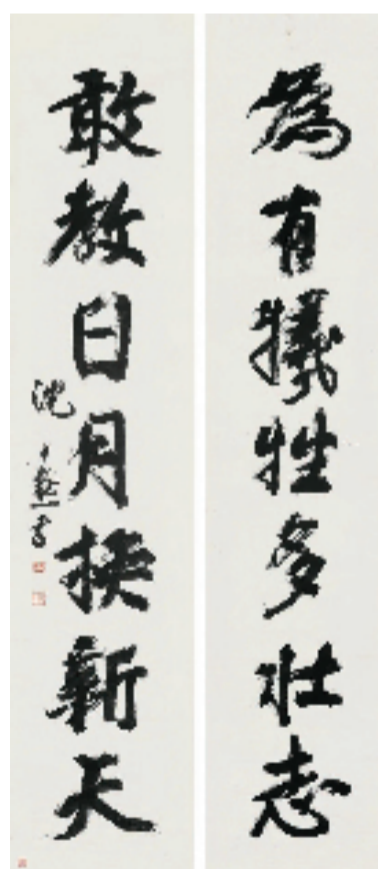 為有犧牲多壯志
敢教日月換新天
沈